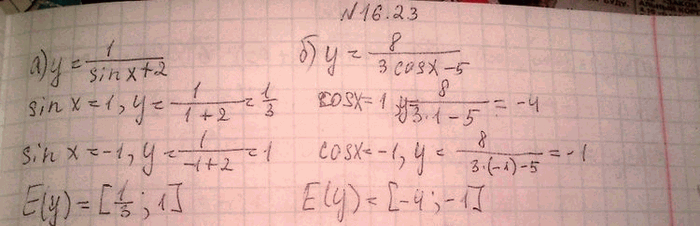 N 16.23
а) y = 1/(sin x+2)
sin x = 1, y = 1/(1+2) = 1/3
sin x = -1, y = 1/(-1+2) = 1
E(y) = [1/3; 1]
б) y = 8/(3 cosx - 5)
cosx = 1 y = 8/(3·1-5) = -4
cosx = -1, y = 8/(3·(-1)-5) = -1
E(y) = [-4; -1]